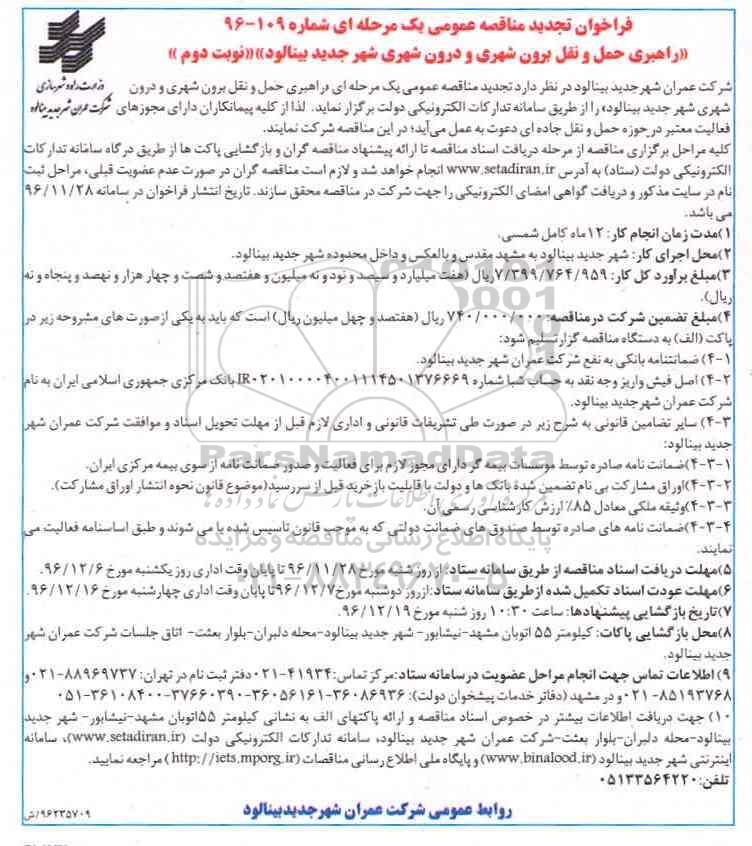 فراخوان تجدید مناقصه عمومی یک مرحله ای شماره ۱۰۹-۹۶
«راهبری حمل و نقل برون شهری و درون شهری شهر جدید بینالود»«نوبت دوم»
وزارت راه و شهرسازی
شرکت عمران شهر جدید بینالود
شرکت عمران شهرجدید بینالود در نظر دارد تجدید مناقصه عمومی یک مرحله ای «راهبری حمل و نقل برون شهری و درون
شهری شهر جدید بینالود» را از طریق سامانه تدارکات الکترونیکی دولت برگزار نماید. لذا از کلیه پیمانکاران دارای مجوزهای
فعالیت معتبر در حوزه حمل و نقل جاده ای دعوت به عمل می‌آید؛ در این مناقصه شرکت نمایند.
کلیه مراحل برگزاری مناقصه از مرحله دریافت اسناد مناقصه تا ارائه پیشنهاد مناقصه گران و بازگشایی پاکت ها از طریق درگاه سامانه تدارکات
الکترونیکی دولت (ستاد) به آدرس www.setadiran.ir انجام خواهد شد و لازم است مناقصه گران در صورت عدم عضویت قبلی، مراحل ثبت
نام در سایت مذکور و دریافت گواهی امضای الکترونیکی را جهت شرکت در مناقصه محقق سازند. تاریخ انتشار فراخوان در سامانه ۹۶/۱۱/۲۸
می باشد.
۱)مدت زمان انجام کار: ۱۲ماه کامل شمسی.
۲)محل اجرای کار: شهر جدید بینالود به مشهد مقدس و بالعکس و داخل محدوده شهر جدید بینالود.
۳)مبلغ برآورد کل کار: ۷/۳۹۹/۷۶۴/۹۵۹ریال (هفت میلیارد و سیصد و نود و نه میلیون و هفتصد و شصت و چهار هزار و نهصد و پنجاه و نه
ریال).
۴)مبلغ تضمین شرکت در مناقصه: ۷۴۰/۰۰۰/۰۰۰ ریال (هفتصد و چهل میلیون ریال) است که باید به یکی از صورت های مشروحه زیر در
پاکت (الف) به دستگاه مناقصه گزار تسلیم شود:
۴-۱) ضمانتنامه بانکی به نفع شرکت عمران شهر جدید بینالود.
۴-۲) اصل فیش واریز وجه نقد به حساب شبا شماره IR۰۲۰۱۰۰۰۰۴۰۰۱۱۱۴۵۰۱۳۷۶۶۶۹ بانک مرکزی جمهوری اسلامی ایران به نام
شرکت عمران شهر جدید بینالود.
۴-۳) سایر تضامین قانونی به شرح زیر در صورت طی تشریفات قانونی و اداری لازم قبل از مهلت تحویل اسناد و موافقت شرکت عمران شهر
جدید بینالود:
۴-۳-۱)ضمانت نامه صادره توسط موسسات بیمه گر دارای مجوز لازم برای فعالیت و صدور ضمانت نامه از سوی بیمه مرکزی ایران.
۴-۳-۲)اوراق مشارکت بی نام تضمین شده بانک ها و دولت با قابلیت بازخرید قبل از سررسید(موضوع قانون نحوه انتشار اوراق مشارکت).
۴-۳-۳)وثیقه ملکی معادل ۸۵٪ ارزش کارشناسی رسمی آن.
۴-۳-۴)ضمانت نامه های صادره توسط صندوق های ضمانت دولتی که به موجب قانون تاسیس شده یا می شوند و طبق اساسنامه فعالیت می
نمایند.
۵)مهلت دریافت اسناد مناقصه از طریق سامانه ستاد: از روز شنبه مورخ ۹۶/۱۱/۲۸ تا پایان وقت اداری روز یکشنبه مورخ ۹۶/۱۲/۶.
۶)مهلت عودت اسناد تکمیل شده ازطریق سامانه ستاد:ازروز دوشنبه مورخ۹۶/۱۲/۷تا پایان وقت اداری چهارشنبه مورخ ۹۶/۱۲/۱۶.
۷)تاریخ بازگشایی پیشنهادها: ساعت ۱۰:۳۰ روز شنبه مورخ ۹۶/۱۲/۱۹.
۸)محل بازگشایی پاکات: کیلومتر ۵۵ اتوبان مشهد-نیشابور- شهر جدید بینالود-محله دلبران-بلوار بعثت- اتاق جلسات شرکت عمران شهر
جدید بینالود.
۹) اطلاعات تماس جهت انجام مراحل عضویت در سامانه ستاد:مرکز تماس:۴۱۹۳۴-۰۲۱دفتر ثبت نام در تهران: ۸۸۹۶۹۷۳۷-۰۲۱و
۸۵۱۹۳۷۶۸-۰۲۱و در مشهد (دفاتر خدمات پیشخوان دولت): ۳۶۰۸۶۹۳۶-۳۶۰۵۶۱۶۱-۳۷۶۶۰۳۹۰-۳۶۱۰۸۴۰۰-۰۵۱
۱۰) جهت دریافت اطلاعات بیشتر در خصوص اسناد مناقصه و ارائه پاکتهای الف به نشانی کیلومتر ۵۵اتوبان مشهد-نیشابور- شهر جدید
بینالود-محله دلبران-بلوار بعثت-شرکت عمران شهر جدید بینالود، سامانه تدارکات الکترونیکی دولت (www.setadiran.ir)، سامانه
اینترنتی شهر جدید بینالود (www.binalood.ir) و پایگاه ملی اطلاع رسانی مناقصات (http://iets.mporg.ir) مراجعه نمایید.
تلفن:۰۵۱۳۳۵۶۴۲۲۰
روابط عمومی شرکت عمران شهرجدیدبینالود
۹۶۲۳۵۷۰۹/ش
ParsNamadData
پایگاه اطلاع رسانی مناقصه و مزایده
۰۲۱-۸۸۳۴۹۶۷۰-۵